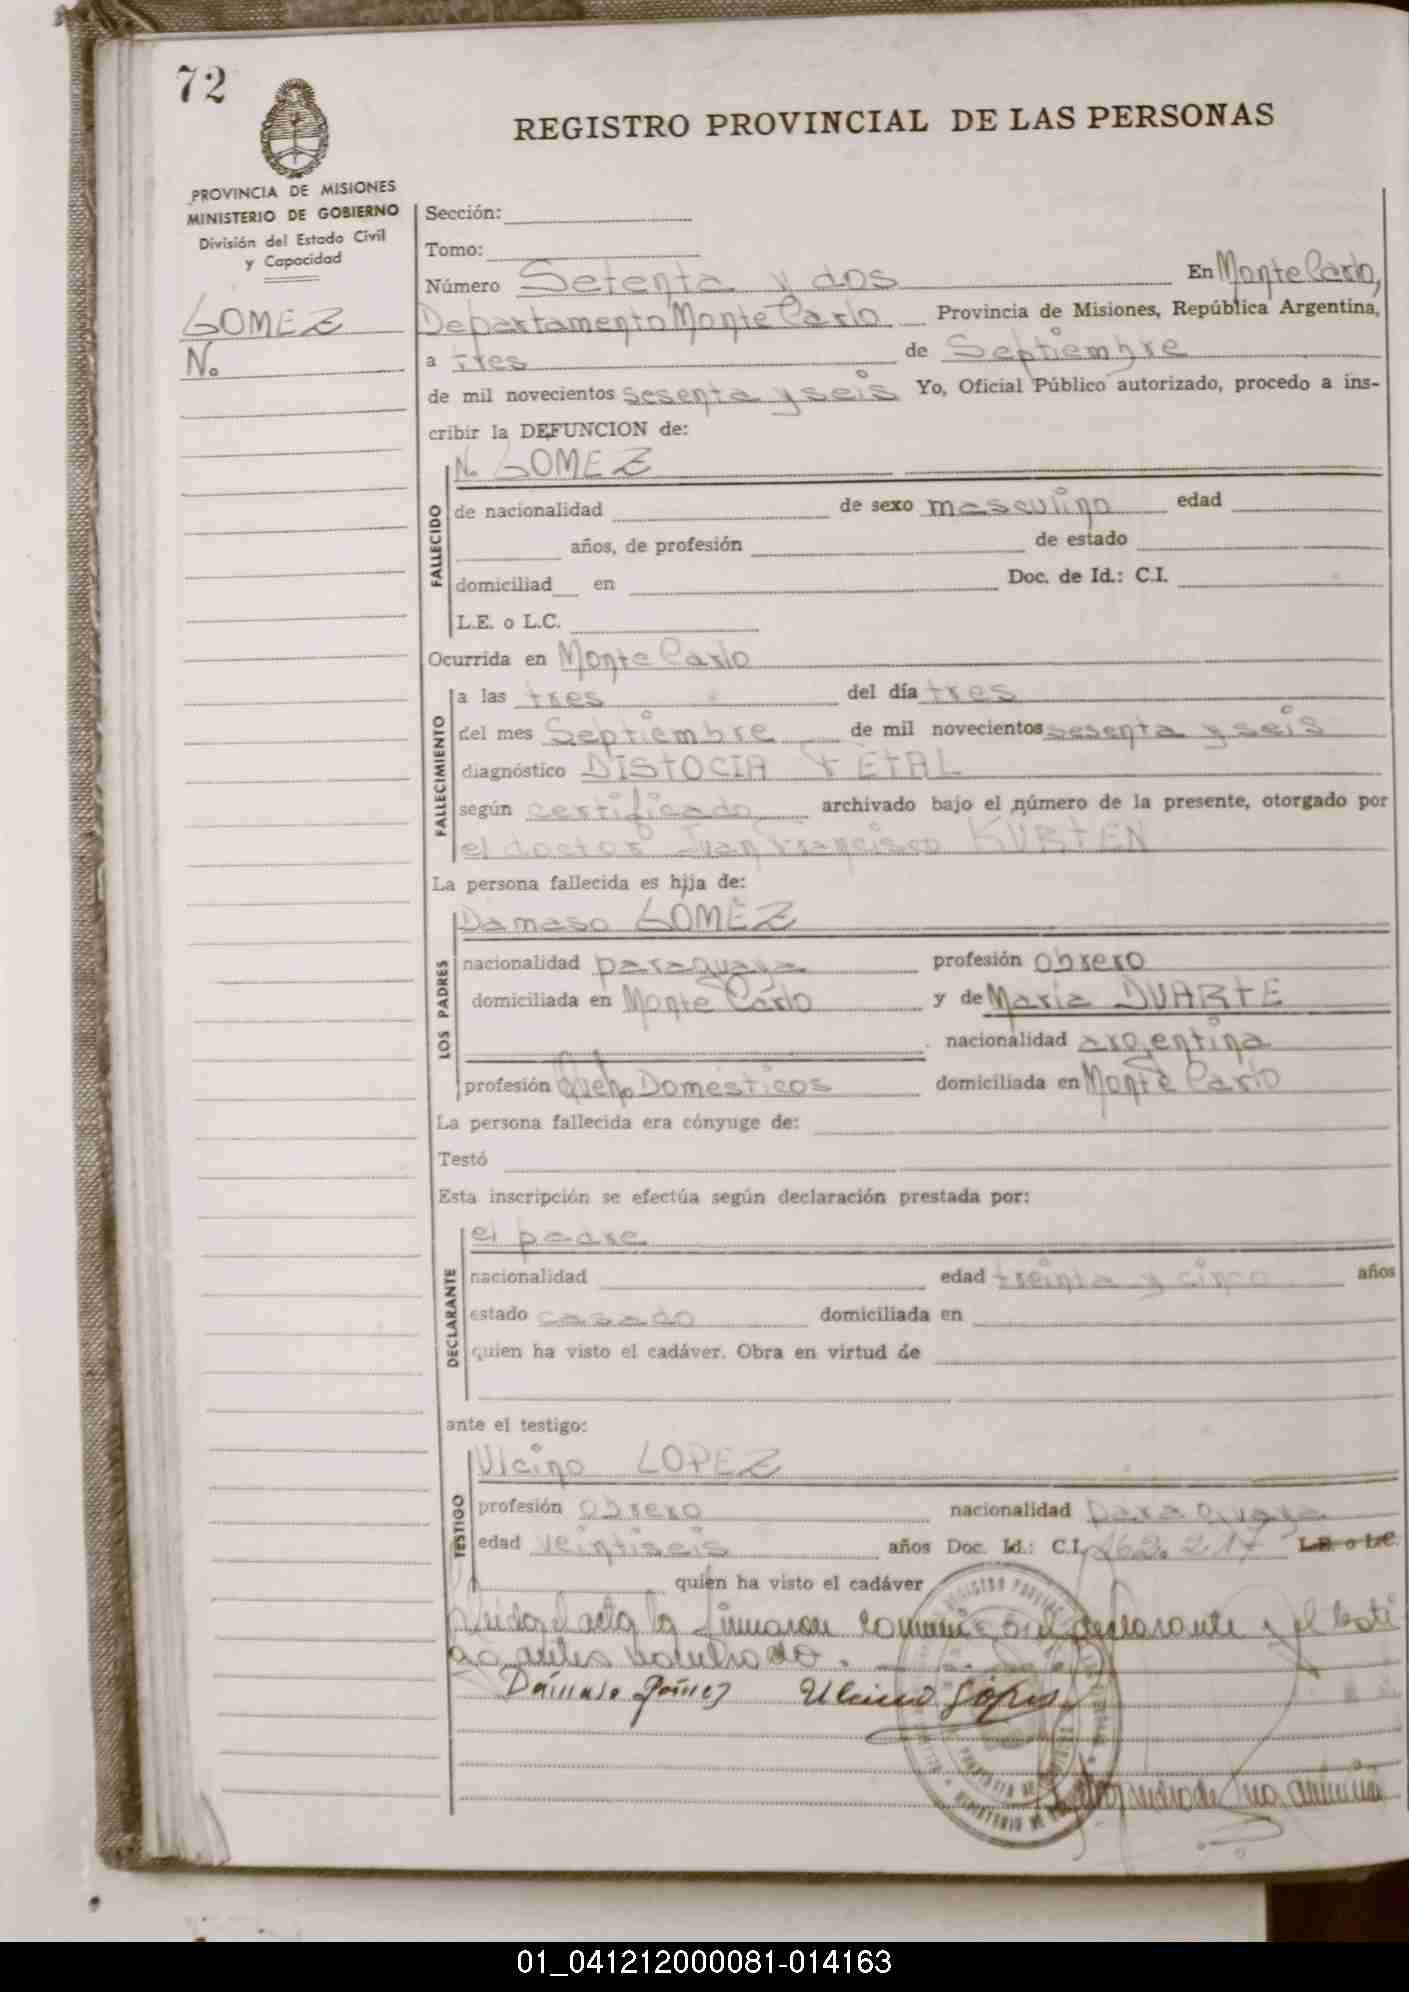 72
REGISTRO PROVINCIAL DE LAS PERSONAS
PROVINCIA DE MISIONES
MINISTERIO DE GOBIERNO
División del Estado Civil
y Capacidad
GOMEZ
N.
Sección:
Tomo:
Número Setenta y dos En Monte Carlo,
Departamento Monte Carlo Provincia de Misiones, República Argentina,
a tres de Septiembre
de mil novecientos sesenta y seis Yo, Oficial Público autorizado, procedo a ins-
cribir la DEFUNCION de:
N. GOMEZ
FALLECIDO
de nacionalidad de sexo masculino edad
años, de profesión de estado
domiciliad en Doc. de Id.: C.I.
L.E. o L.C.
Ocurrida en Monte Carlo
FALLECIMIENTO
a las tres del día tres
del mes Septiembre de mil novecientos sesenta y seis
diagnóstico DISTOCIA FETAL
según certificado archivado bajo el número de la presente, otorgado por
el doctor Juan Francisco KURTEN
La persona fallecida es hija de:
Damaso GOMEZ
LOS PADRES
nacionalidad paraguaya profesión obrero
domiciliada en Monte Carlo y de María DUARTE
nacionalidad argentina
profesión Queh. Domésticos domiciliada en Monte Carlo
La persona fallecida era cónyuge de:
Testó
Esta inscripción se efectúa según declaración prestada por:
el padre
DECLARANTE
nacionalidad edad treinta y cinco años
estado casado domiciliada en
quien ha visto el cadáver. Obra en virtud de
ante el testigo:
Ulcino LOPEZ
TESTIGO
profesión obrero nacionalidad paraguaya
edad veintiseis años Doc. Id.: C.I. 162.217 L.E. o L.C.
quien ha visto el cadáver
Leida el acta la firmaron conmigo el declarante y el testi
go antes nombrado.
Dámaso Gómez Ulcino López
REGISTRO PROVINCIAL
01_041212000081-014163